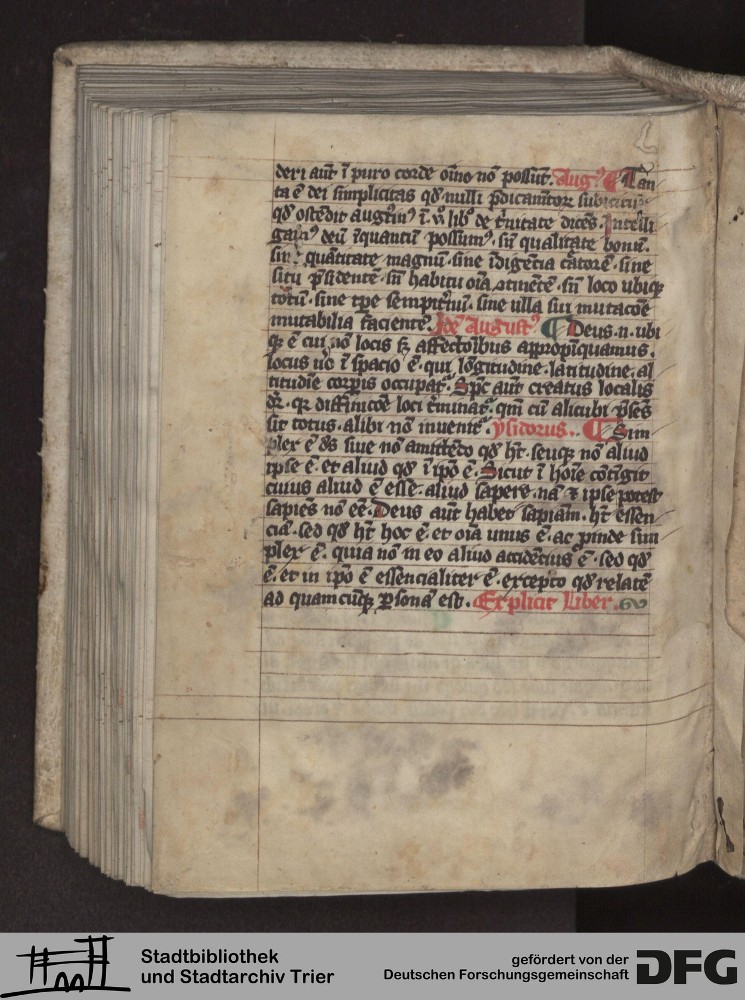 deri aut̄ ī puro corde om̄no nō possūt. Augꝯ Tan
ta ē dei simplicitas qd̄ nulli p̄dicam̄tor
qd̄ ostēdit augustinꝯ ī. v̊ libꝰ de t̄nitate dicēs. Intelli
deū īquantū possumꝯ. sn̄ qualitate bonū.
quātitate magnū. sine īdigētia c̄atorē. sine
situ p̄sidentē. sn̄ habitu oīa ɔtinētē. sn̄ loco ubiqꝫ
totū. sine tp̄e sempit̄nū. sine ulla sui mutacōe
mutabilia facientē. Idē Augustꝯ Deus .n. ubi
qꝫ ē cui nō locis sꝫ affectōibus appropīquamus.
locus ůo ī spacio ē. qui lōgitudine. latitudine. al
titudīe corp̄is occupat᷑. Sp̄c aut̄ creatus localis
dr̄. qꝛ diffinicōe loci t̄minat᷑. qm̄ cū alicubi p̄sēs
sit totus. alibi nō inuenit᷑. ysidorus. Sim
plex ē ds̄ siue nō amittēto qd̄ ht̄. seuqꝫ nō aliud
ipse ē. et aliud qd̄ ī ip̄o ē. Sicut ī hoīe cōtīgit
cuius aliud ē esse. aliud sapere. nā ⁊ ipse potest
sapiēs nō eē. Deus aut̄ habet sapīam. ht̄ essen
ciā. sed qd̄ ht̄ hoc ē. et oīa unus ē. ac p̄inde sim
plex ē. quia nō in eo aliud accidēcius ē. sed qd̄
ē. et in ip̄o ē essencialiter ē. excepto qd̄ relatē
ad quamcūqꝫ ꝑsonā est. Explicit Liber.
Stadtbibliothek
und Stadtarchiv Trier
gefördert von der
Deutschen Forschungsgemeinschaft
DFG